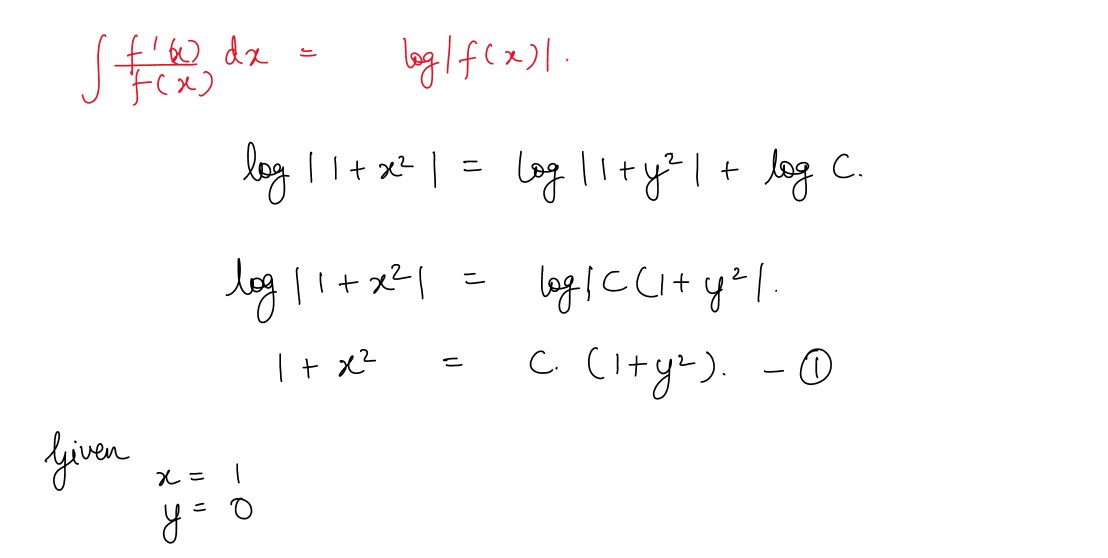 ∫ f'(x)/f(x) dx = log|f(x)|.
log |1 + x²| = log |1 + y²| + log C.
log |1 + x²| = log|C(1 + y²|.
1 + x² = C. (1+y²). - ①
Given
x = 1
y = 0